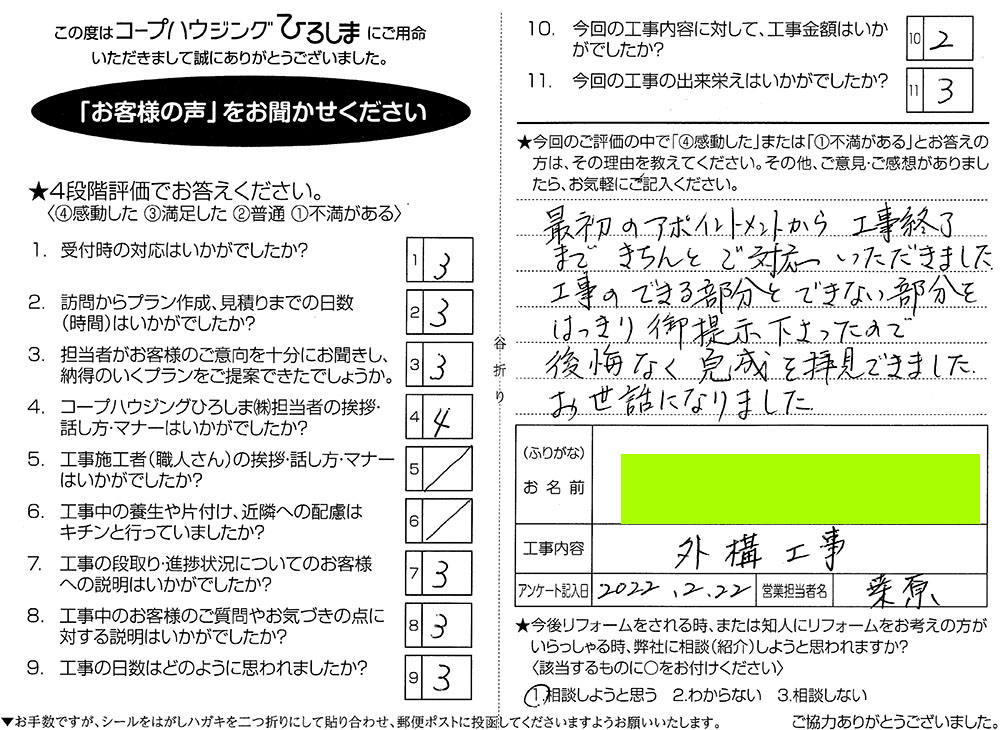 この度はコープハウジングひろしまにご用命
いただきまして誠にありがとうございました。
「お客様の声」をお聞かせください
★4段階評価でお答えください。
〈④感動した ③満足した ②普通 ①不満がある〉
1. 受付時の対応はいかがでしたか?
1 3
2. 訪問からプラン作成、見積りまでの日数
(時間)はいかがでしたか?
2 3
3. 担当者がお客様のご意向を十分にお聞きし、
納得のいくプランをご提案できたでしょうか。
3 3
4. コープハウジングひろしま㈱担当者の挨拶・
話し方・マナーはいかがでしたか?
4 4
5. 工事施工者(職人さん)の挨拶・話し方・マナー
はいかがでしたか?
5 /
6. 工事中の養生や片付け、近隣への配慮は
キチンと行っていましたか?
6 /
7. 工事の段取り・進捗状況についてのお客様
への説明はいかがでしたか?
7 3
8. 工事中のお客様のご質問やお気づきの点に
対する説明はいかがでしたか?
8 3
9. 工事の日数はどのように思われましたか?
9 3
谷折り
10. 今回の工事内容に対して、工事金額はいか
がでしたか?
10 2
11. 今回の工事の出来栄えはいかがでしたか?
11 3
★今回のご評価の中で「④感動した」または「①不満がある」とお答えの
方は、その理由を教えてください。その他、ご意見・ご感想がありまし
たら、お気軽にご記入ください。
最初のアポイントメントから 工事終了
まで きちんと ご対応 いただきました
工事の できる部分と できない部分を
はっきり 御提示下さったので
後悔なく 完成を拝見できました.
お世話になりました
(ふりがな)
お名前
工事内容 外構工事
アンケート記入日 2022.2.22 営業担当者名 桒原
★今後リフォームをされる時、または知人にリフォームをお考えの方が
いらっしゃる時、弊社に相談(紹介)しようと思われますか?
〈該当するものに○をお付けください〉
1.相談しようと思う 2.わからない 3.相談しない
▼お手数ですが、シールをはがしハガキを二つ折りにして貼り合わせ、郵便ポストに投函してくださいますようお願いいたします。
ご協力ありがとうございました。